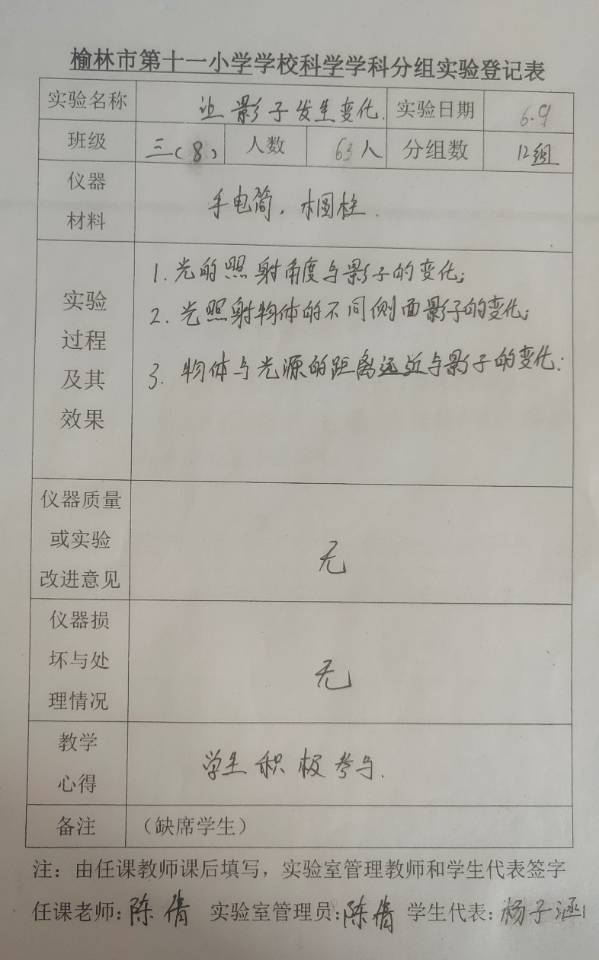 榆林市第十一小学学校科学学科分组实验登记表
实验名称 让影子发生变化. 实验日期 6.9
班级 三(8) 人数 63人 分组数 12组
仪器
材料
手电筒, 木圆柱.
实验
过程
及其
效果
1. 光的照射角度与影子的变化;
2. 光照射物体的不同侧面影子的变化;
3. 物体与光源的距离远近与影子的变化;
仪器质量
或实验
改进意见
无
仪器损
坏与处
理情况
无
教学
心得
学生积极参与.
备注 (缺席学生)
注:由任课教师课后填写,实验室管理教师和学生代表签字
任课老师:陈倩 实验室管理员:陈倩 学生代表:杨子涵